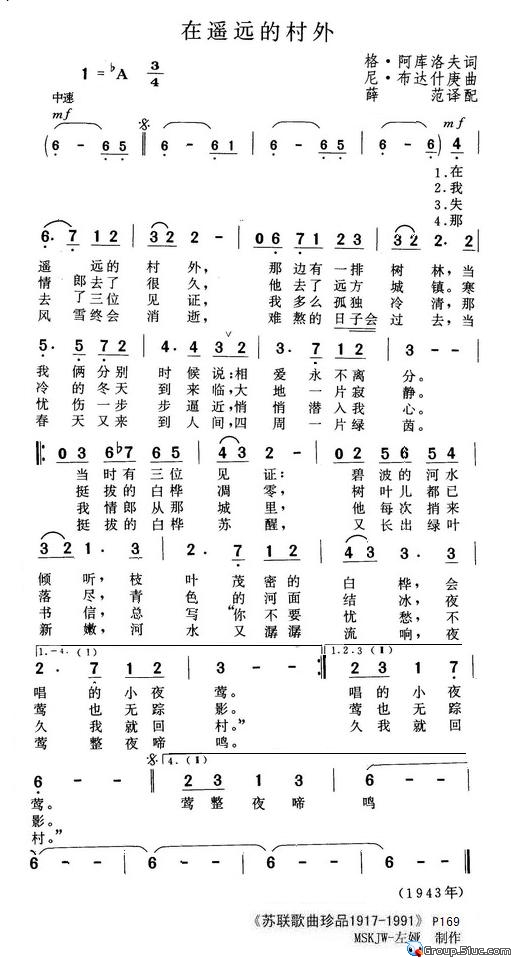 在遥远的村外
格·阿库洛夫词
1=♭A 3/4
尼·布达什庚曲
薛 范译配
中速
mf
(6 - 65 ‖ 6 - - | 6 - 65 | 6 - - | 6 - 65 | 6 -) 4 |
mf
1.在
2.我
3.失
4.那
6· 7 12 | 32 2 - | 06 71 23 | 32 2· 2 |
遥 远的 村 外， 那边有一排 树 林，当
情 郎去了 很 久， 他去了远方 城 镇。寒
去 了三位 见 证， 我多么孤独 冷 清，那
风 雪终会 消 逝， 难熬的日子会 过 去，当
5· 5 72 | 4· 4 32 | 3· 7 12 | 3 - - |
我 俩分别 时 候说：相 爱 永不离 分。
冷 的冬天 到 来临，大 地 一片寂 静。
忧 伤一步 步 逼近，悄 悄 潜入我 心。
春 天又来 到 人间，四 周 一片绿 茵。
‖: 03 6♭7 65 | 43 2 - | 02 65 54 |
当时有三位 见 证： 碧波的河水
挺拔的白桦 凋 零， 树叶儿都已
我情郎从那 城 里， 他每次捎来
挺拔的白桦 苏 醒， 又长出绿叶
32 1· 3 | 2· 7 12 | 43 3· 3 |
倾 听，枝 叶 茂密的 白 桦，会
落 尽，青 色 的河面 结 冰，夜
书 信，总 写“你不要 忧 愁，不
新 嫩，河 水 又潺潺 流 响，夜
1.-4. (1)
1.2.3 (1)
2· 7 12 | 3 - - :‖ 2 23 17 |
唱 的小夜 莺。 唱的小夜
莺 也无踪 影。 莺也无踪
久 我就回 村。” 久我就回
莺 整夜啼 鸣。
4. (1)
6 - - ‖ 23 13 | 6 - - |
莺。 莺整夜啼 鸣
影。
村。”
6 - - | 6 - - | 6 - - | 6 - - ‖
(1943年)
《苏联歌曲珍品1917-1991》 P169
MSKJW-左娅 制作
Group.51uc.com